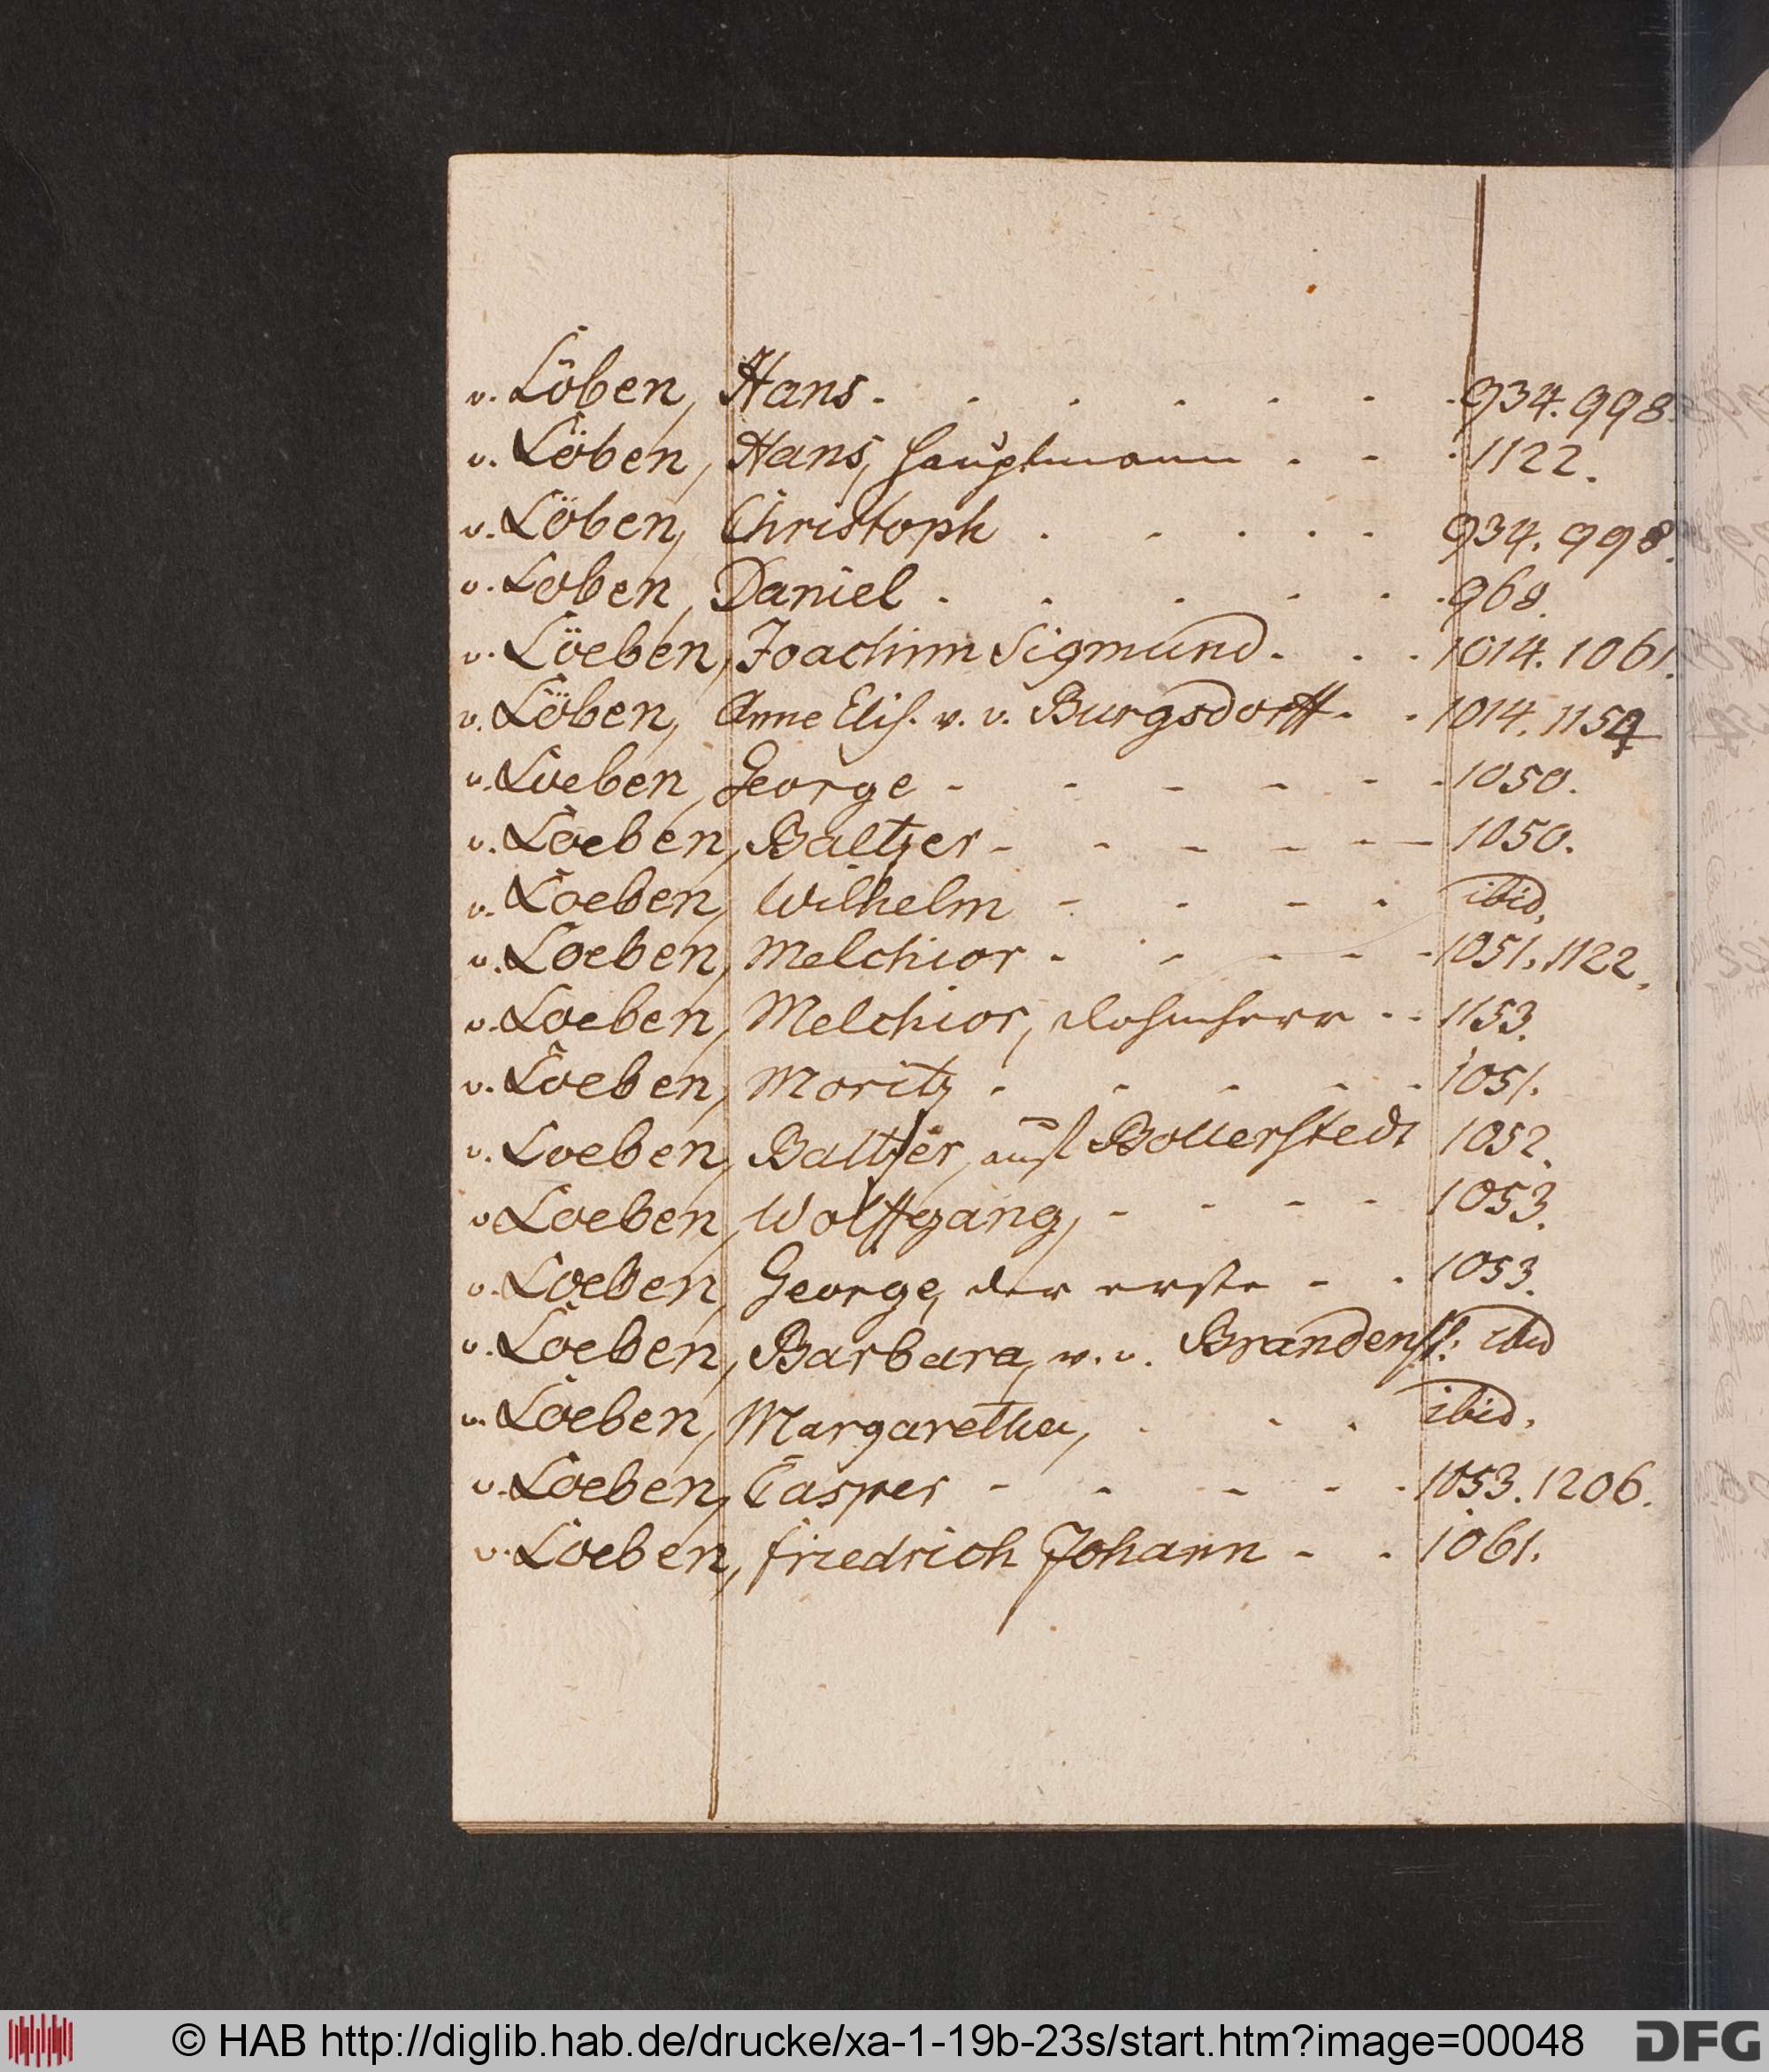 v. Löben, Hans . . . . . . . 934. 998.
v. Löben, Hans, Hauptmann . - . 1122.
v. Löben, Christoph . . . . . 934. 998.
v. Loben, Daniel . . . . . . 968.
v. Löeben, Joachim Sigmund . . . 1014. 1061.
v. Löben, Anne Elis. v. v. Burgsdorff . . 1014. 1154
v. Loeben, George - - - - - - 1050.
v. Loeben, Baltzer - - - - - - 1050.
v. Loeben, Wilhelm - - - . ibid.
v. Loeben, Melchior - - - - - 1051. 1122.
v. Loeben, Melchior, Dohmherr - - 1153.
v. Loeben, Moritz - - - - - 1051.
v. Loeben, Baltzer, auß Bollerstedt 1052.
v Loeben, Wolffgang, - - - - 1053.
v. Loeben, George, der erste - . 1053.
v. Loeben, Barbara, v. v. Brandenst: ibid
v. Loeben, Margaretha, . . . ibid.
v. Loeben, Casper - - - - - 1053. 1206.
v. Loeben, Friedrich Johann - . 1061.
© HAB http://diglib.hab.de/drucke/xa-1-19b-23s/start.htm?image=00048
DFG